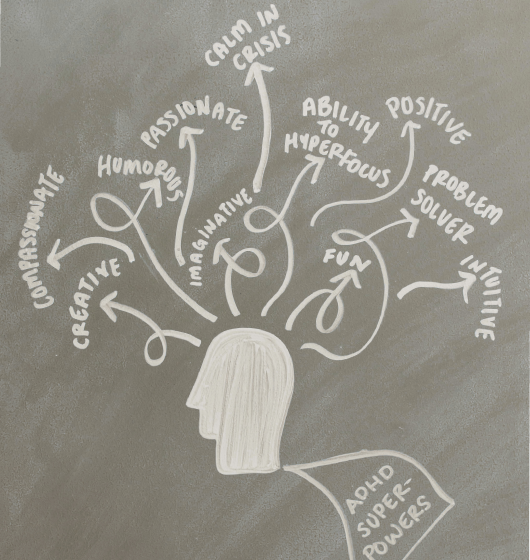 CALM IN
CRISIS
PASSIONATE
ABILITY
TO
HYPERFOCUS
POSITIVE
HUMOROUS
PROBLEM
SOLVER
COMPASSIONATE
IMAGINATIVE
FUN
INTUITIVE
CREATIVE
ADHD
SUPER-
POWERS